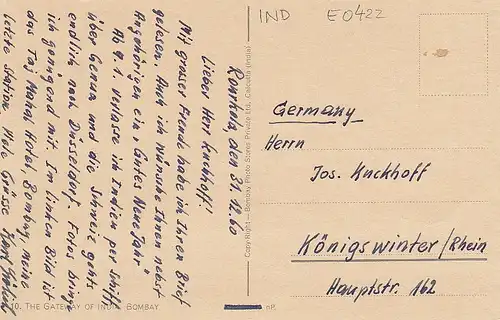 IND E0422
Rourkela, den 31.12.60
Lieber Herr Knckhoff!
Mit grosser Freude habe ich Ihren Brief
gelesen. Auch ich wünsche Ihnen nebst
Angehörigen ein "Gutes Neue Jahr"
Ab 9.1. verlasse ich Indien per Schiff
über Genua und die Schweiz gehts
endlich nach Düsseldorf. Fotos bringe
ich genügend mit. Im linken Bild ist
das Taj Mahal Hotel, Bombay, meine
letzte Station. Viele Grüsse
10. THE GATEWAY OF INDIA, BOMBAY
Copy Right — Bombay Photo Stores Private Ltd., Calcutta (India)
Germany
Herrn
Jos. Knckhoff
Königswinter/Rhein
Hauptstr. 162
nP.